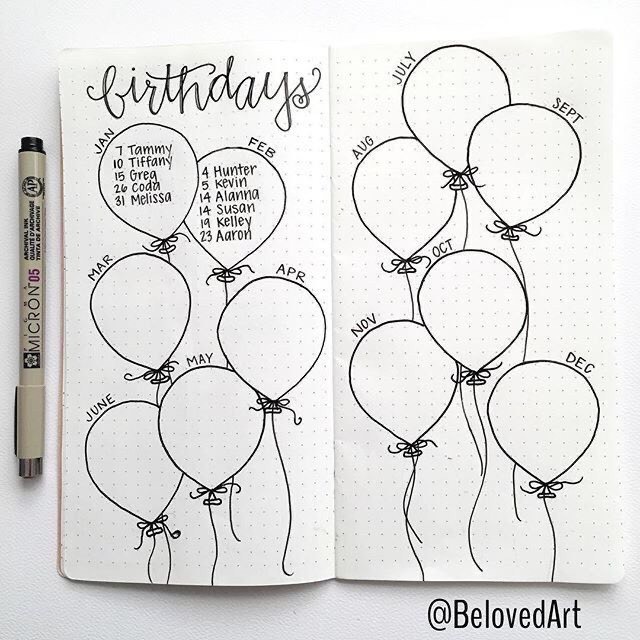 birthdays
JAN
7 Tammy
10 Tiffany
15 Greg
26 Coda
31 Melissa
FEB
4 Hunter
5 Kevin
14 Alanna
14 Susan
19 Kelley
23 Aaron
MAR
APR
MAY
JUNE
JULY
AUG
SEPT
OCT
NOV
DEC
AP
ARCHIVAL INK
QUALITÉ D'ARCHIVAGE
TINTA DE ARCHIVE
SIGMA
MICRON 05
@BelovedArt